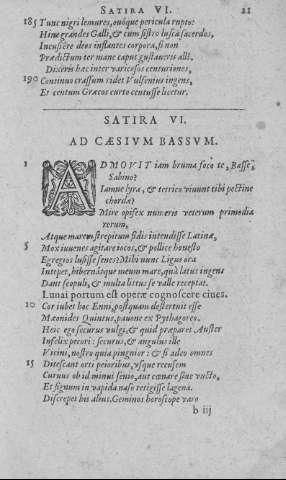 SATIRA VI. 21
185 Tunc nigri lemures, ouóque pericula rupto:
Hinc grandes Galli, & cum sistro lusca sacerdos,
Incussere deos inflantes corpora, si non
Prædictum ter mane caput gustaueris alli.
Dixeris hæc inter varicosos centuriones,
190 Continuo crassum ridet Vulfenius ingens,
Et centum Græcos curto centusse licetur.
SATIRA VI.
AD CÆSIVM BASSVM.
1 ADMOVIT iam bruma foco te, Basse,
Sabino?
Iamne lyra, & tetrico viuunt tibi pectine
chordæ?
Mire opifex numeris veterum primordia
rerum,
Atque marem strepitum fidis intendisse Latinæ,
5 Mox iuuenes agitare iocos, & pollice honesto
Egregios lusisse senes? Mihi nunc Ligus ora
Intepet, hibernátque meum mare, quà latus ingens
Dant scopuli, & multa littus se valle receptat.
Lunai portum est operæ cognoscere ciues.
10 Cor iubet hoc Enni, postquam destertuit esse
Mæonides Quintus, pauone ex Pythagoreo.
Heic ego securus vulgi, & quid præparet Auster
Infelix pecori: securus, & angulus ille
Vicini, nostro quia pinguior: & si adeo omnes
15 Ditescant orti peioribus, vsque recusem
Curuus ob id minui senio, aut cœnare sine vncto,
Et signum in vapida naso tetigisse lagena.
Discrepet his alius. Geminos horoscope varo
b iij